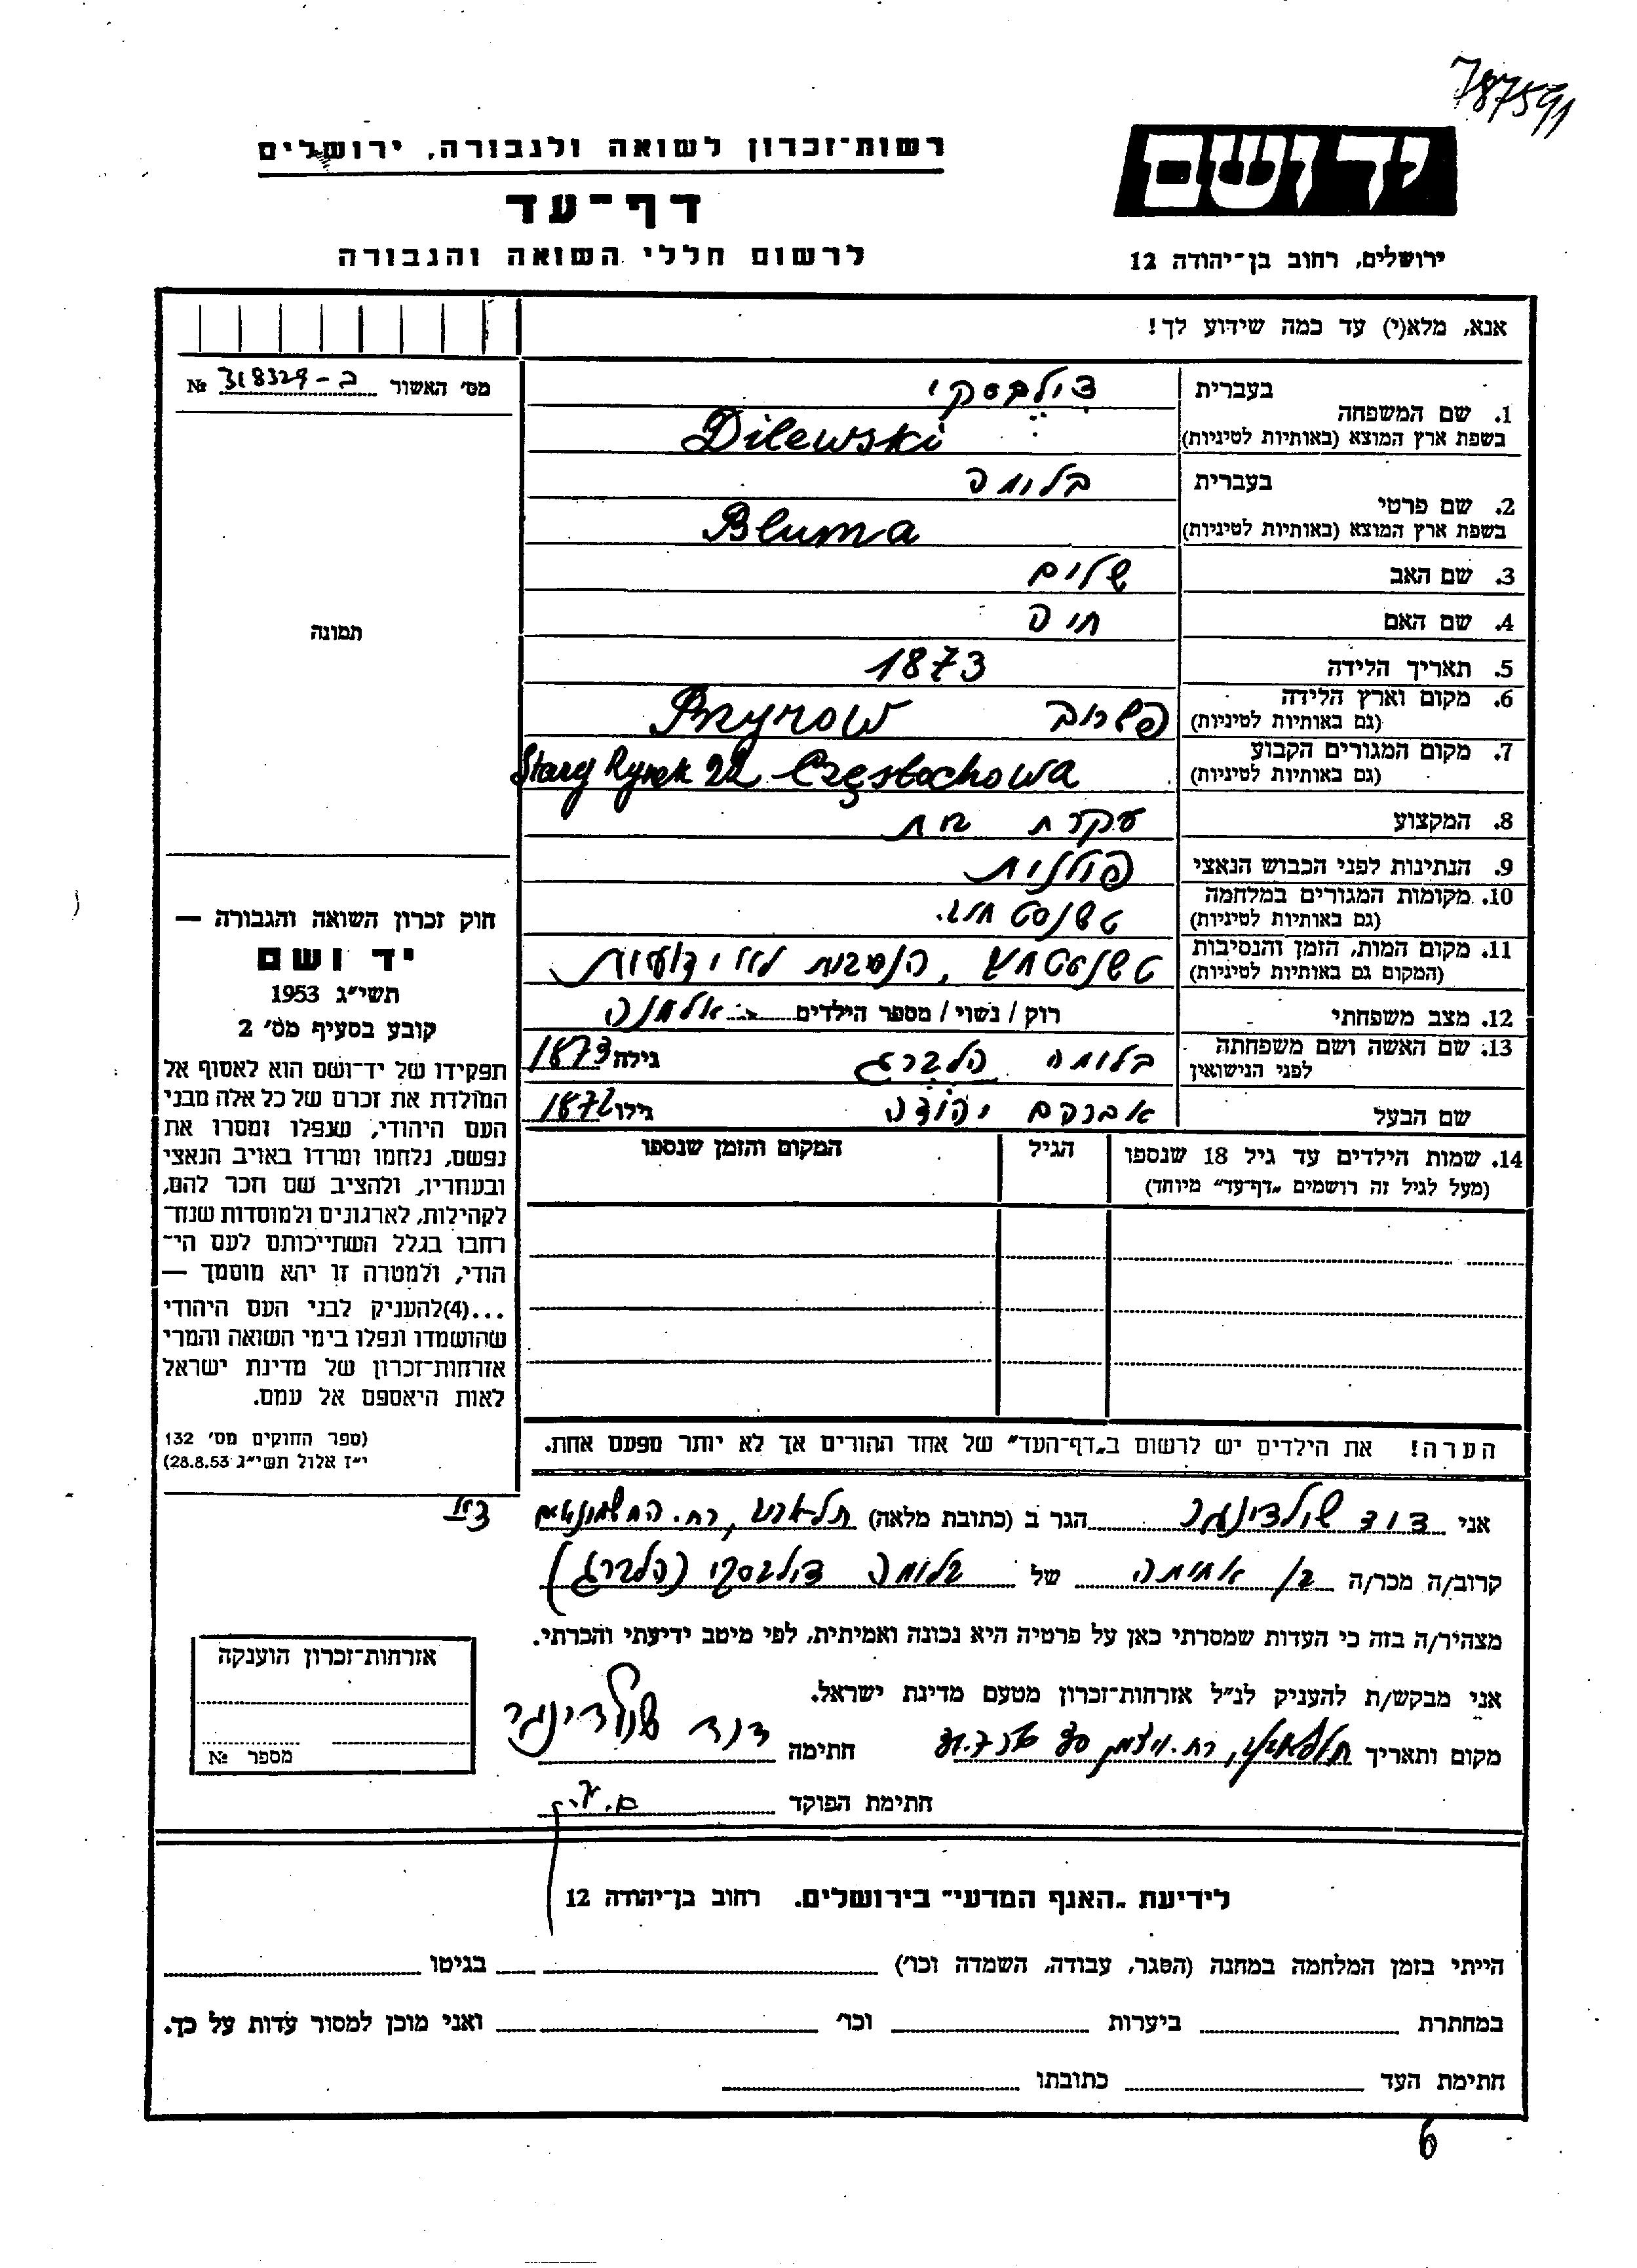 787591
יד ושם
רשות־זכרון לשואה ולגבורה, ירושלים
דף־עד
לרשום חללי השואה והגבורה
ירושלים, רחוב בן־יהודה 12
אנא, מלא(י) עד כמה שידוע לך!
מס׳ האשור ב-318329 №
תמונה
בעברית דילבסקי
1. שם המשפחה
בשפת ארץ המוצא (באותיות לטיניות) Dilewski
בעברית בלומה
2. שם פרטי
בשפת ארץ המוצא (באותיות לטיניות) Bluma
3. שם האב שלום
4. שם האם חיה
5. תאריך הלידה 1873
6. מקום וארץ הלידה
(גם באותיות לטיניות) פשרוב Przyrow
7. מקום המגורים הקבוע
(גם באותיות לטיניות) Stary Rynek 22 Częstochowa
8. המקצוע עקרת בית
9. הנתינות לפני הכבוש הנאצי פולנית
10. מקומות המגורים במלחמה
(גם באותיות לטיניות)
11. מקום המות, הזמן והנסיבות
(המקום גם באותיות לטיניות) הנסיבות לא ידועות
12. מצב משפחתי רוק / נשוי / מספר הילדים אלמנה
13. שם האשה ושם משפחתה
לפני הנישואין בלומה הלברג גילה 1873
שם הבעל אברהם יהודה גילו 1872
14. שמות הילדים עד גיל 18 שנספו
(מעל לגיל זה רושמים „דף־עד” מיוחד)
הגיל
המקום והזמן שנספו
חוק זכרון השואה והגבורה —
יד ושם
תשי״ג 1953
קובע בסעיף מס׳ 2
תפקידו של יד־ושם הוא לאסוף אל
המולדת את זכרם של כל אלה מבני
העם היהודי, שנפלו ומסרו את
נפשם, נלחמו ומרדו באויב הנאצי
ובעוזריו, ולהציב שם וזכר להם,
לקהילות, לארגונים ולמוסדות שנח־
רבו בגלל השתייכותם לעם הי־
הודי, ולמטרה זו יהא מוסמך —
...(4)להעניק לבני העם היהודי
שהושמדו ונפלו בימי השואה והמרי
אזרחות־זכרון של מדינת ישראל
לאות היאספם אל עמם.
(ספר החוקים מס׳ 132
י״ז אלול תשי״ג 28.8.53)
הערה! את הילדים יש לרשום ב„דף־העד” של אחד ההורים אך לא יותר מפעם אחת.
אני דוד שולדינגר הגר ב (כתובת מלאה) תל־אביב, רח.
קרוב/ה מכר/ה של בלומה דילבסקי (הלברג)
מצהיר/ה בזה כי העדות שמסרתי כאן על פרטיה היא נכונה ואמיתית, לפי מיטב ידיעתי והכרתי.
אני מבקש/ת להעניק לנ״ל אזרחות־זכרון מטעם מדינת ישראל.
מקום ותאריך תל־אביב, רח. חתימה דוד שולדינגר
חתימת הפוקד
אזרחות־זכרון הוענקה
מספר №
לידיעת „האגף המדעי” בירושלים. רחוב בן־יהודה 12
הייתי בזמן המלחמה במחנה (הסגר, עבודה, השמדה וכו׳) בגיטו
במחתרת ביערות וכו׳ ואני מוכן למסור עדות על כך.
חתימת העד כתובתו
6